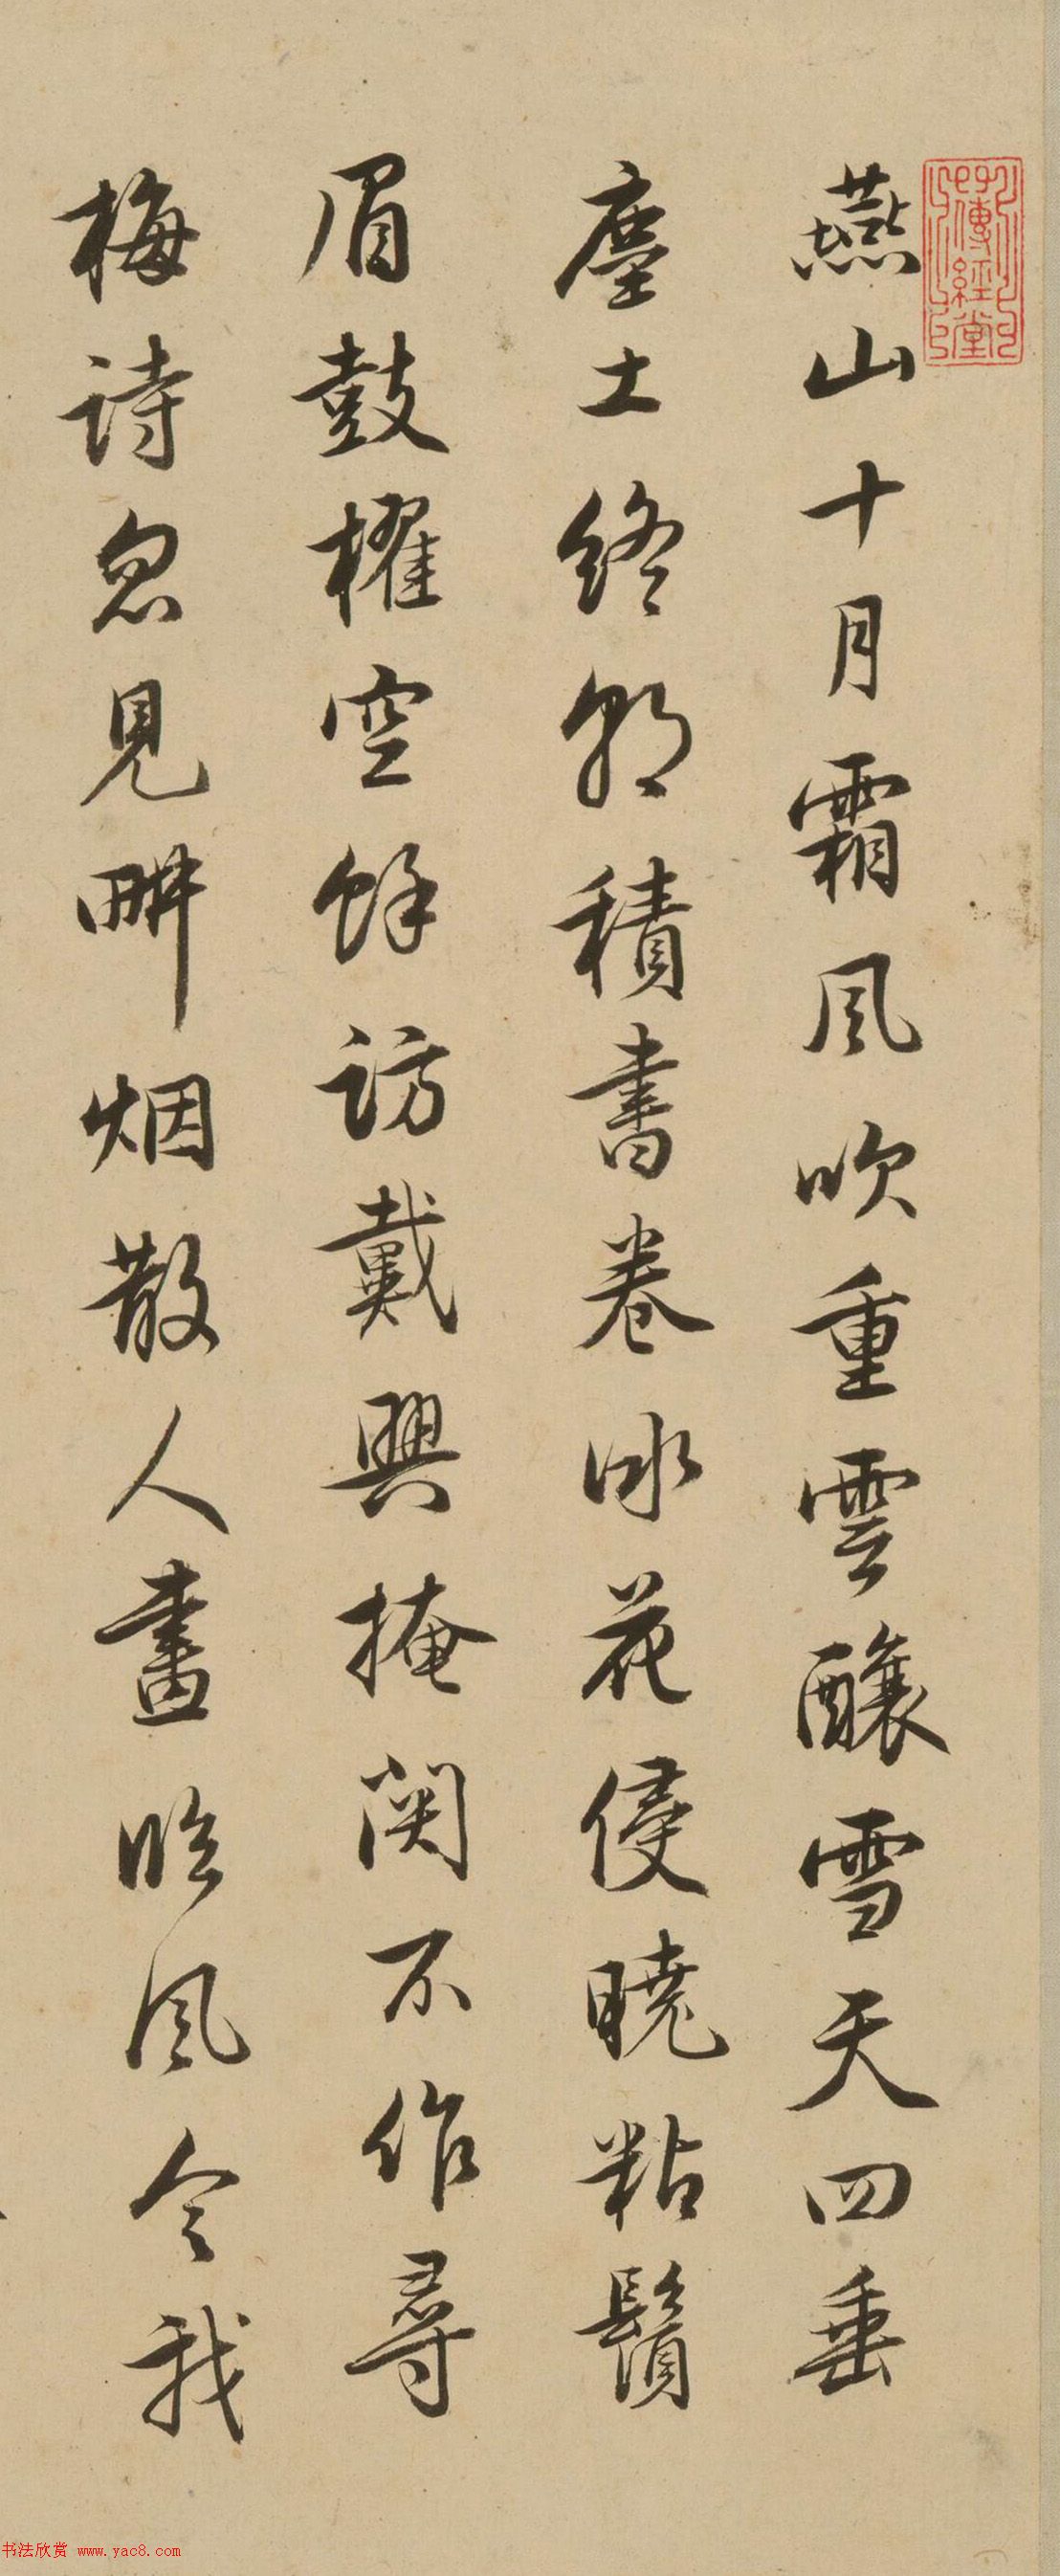 燕山十月霜風吹重雲釀雪天四垂
塵土終朝積書卷冰花侵曉粘鬚
眉鼓櫂空餘訪戴興掩關不作尋
梅詩忽見畊烟散人畫臨風令我
傳經堂
书法欣赏 www.yac8.com